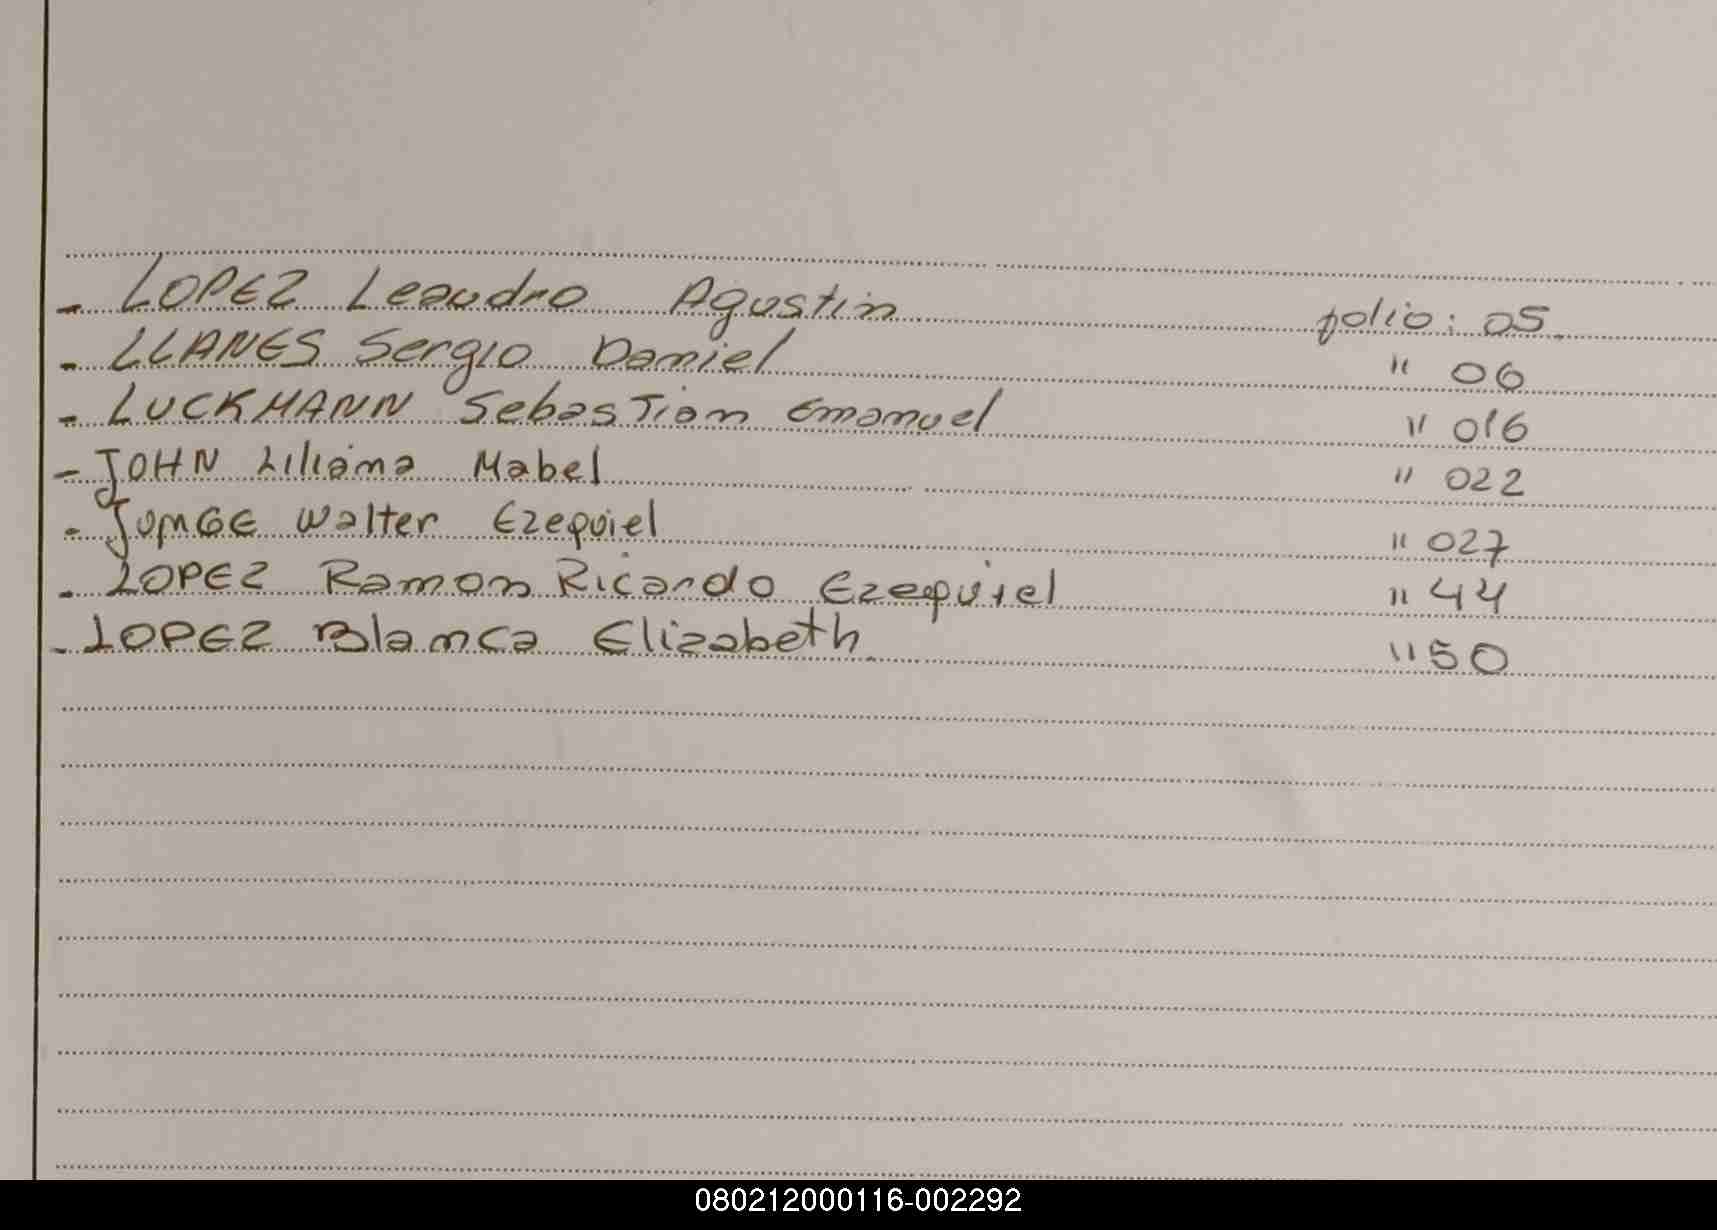 - LOPEZ Leandro Agustin folio: 05.
- LLANES Sergio Daniel " 06
- LUCKMANN Sebastian Emanuel " 016
- JOHN Liliana Mabel " 022
- Walter Ezequiel " 027
- LOPEZ Ramon Ricardo Ezequiel " 44
- LOPEZ Blanca Elizabeth. " 50
080212000116-002292